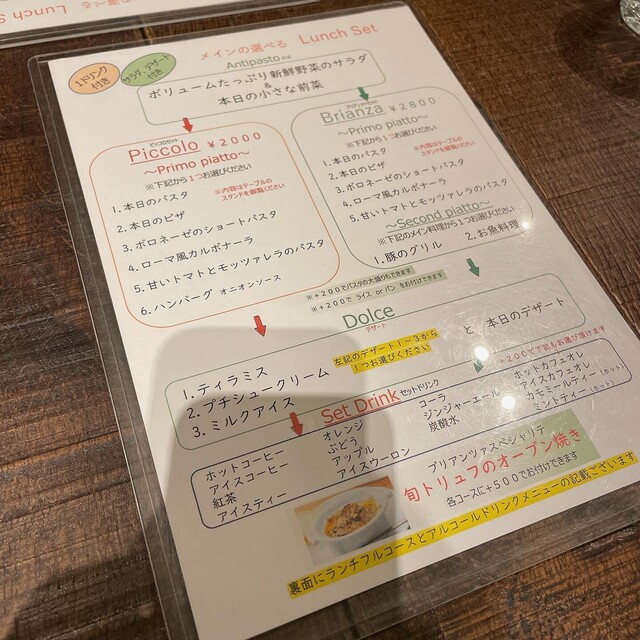 メインの選べる Lunch Set
1ドリンク
付き
サラダ・デザート
付き
Antipasto
ボリュームたっぷり新鮮野菜のサラダ
&
本日の小さな前菜
Piccolo ¥2000
～Primo piatto～
※下記から1つお選びください
※内容はテーブルの
スタンドを御覧ください
1. 本日のパスタ
2. 本日のピザ
3. ボロネーゼのショートパスタ
4. ローマ風カルボナーラ
5. 甘いトマトとモッツァレラのパスタ
6. ハンバーグ オニオンソース
Brianza ¥2800
～Primo piatto～
※下記から1つお選びください
※内容はテーブルの
スタンドを御覧ください
1. 本日のパスタ
2. 本日のピザ
3. ボロネーゼのショートパスタ
4. ローマ風カルボナーラ
5. 甘いトマトとモッツァレラのパスタ
～Second piatto～
※下記のメイン料理から1つお選びください
1. 豚のグリル
2. お魚料理
※+200でパスタの大盛りもできます
※+200で ライス or パン をお付けできます
Dolce
デザート
1. ティラミス
2. プチシュークリーム
3. ミルクアイス
左記のデザート1～3から
1つお選びください
と 本日のデザート
Set Drink セットドリンク
※200で下記もお選び頂けます
ホットコーヒー
アイスコーヒー
紅茶
アイスティー
オレンジ
ぶどう
アップル
アイスウーロン
コーラ
ジンジャーエール
炭酸水
ホットカフェオレ
アイスカフェオレ
カモミールティー(ホット)
ミントティー(ホット)
ブリアンツァスペシャリテ
旬トリュフのオーブン焼き
各コースに+500でお付けできます
裏面にランチフルコースとアルコールドリンクメニューの記載ございます